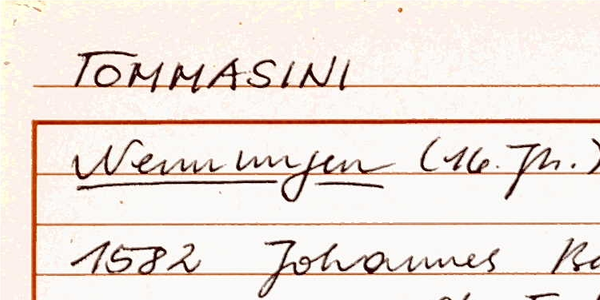 TOMMASINI
Nennungen (16. Jh.)
1582 Johannes